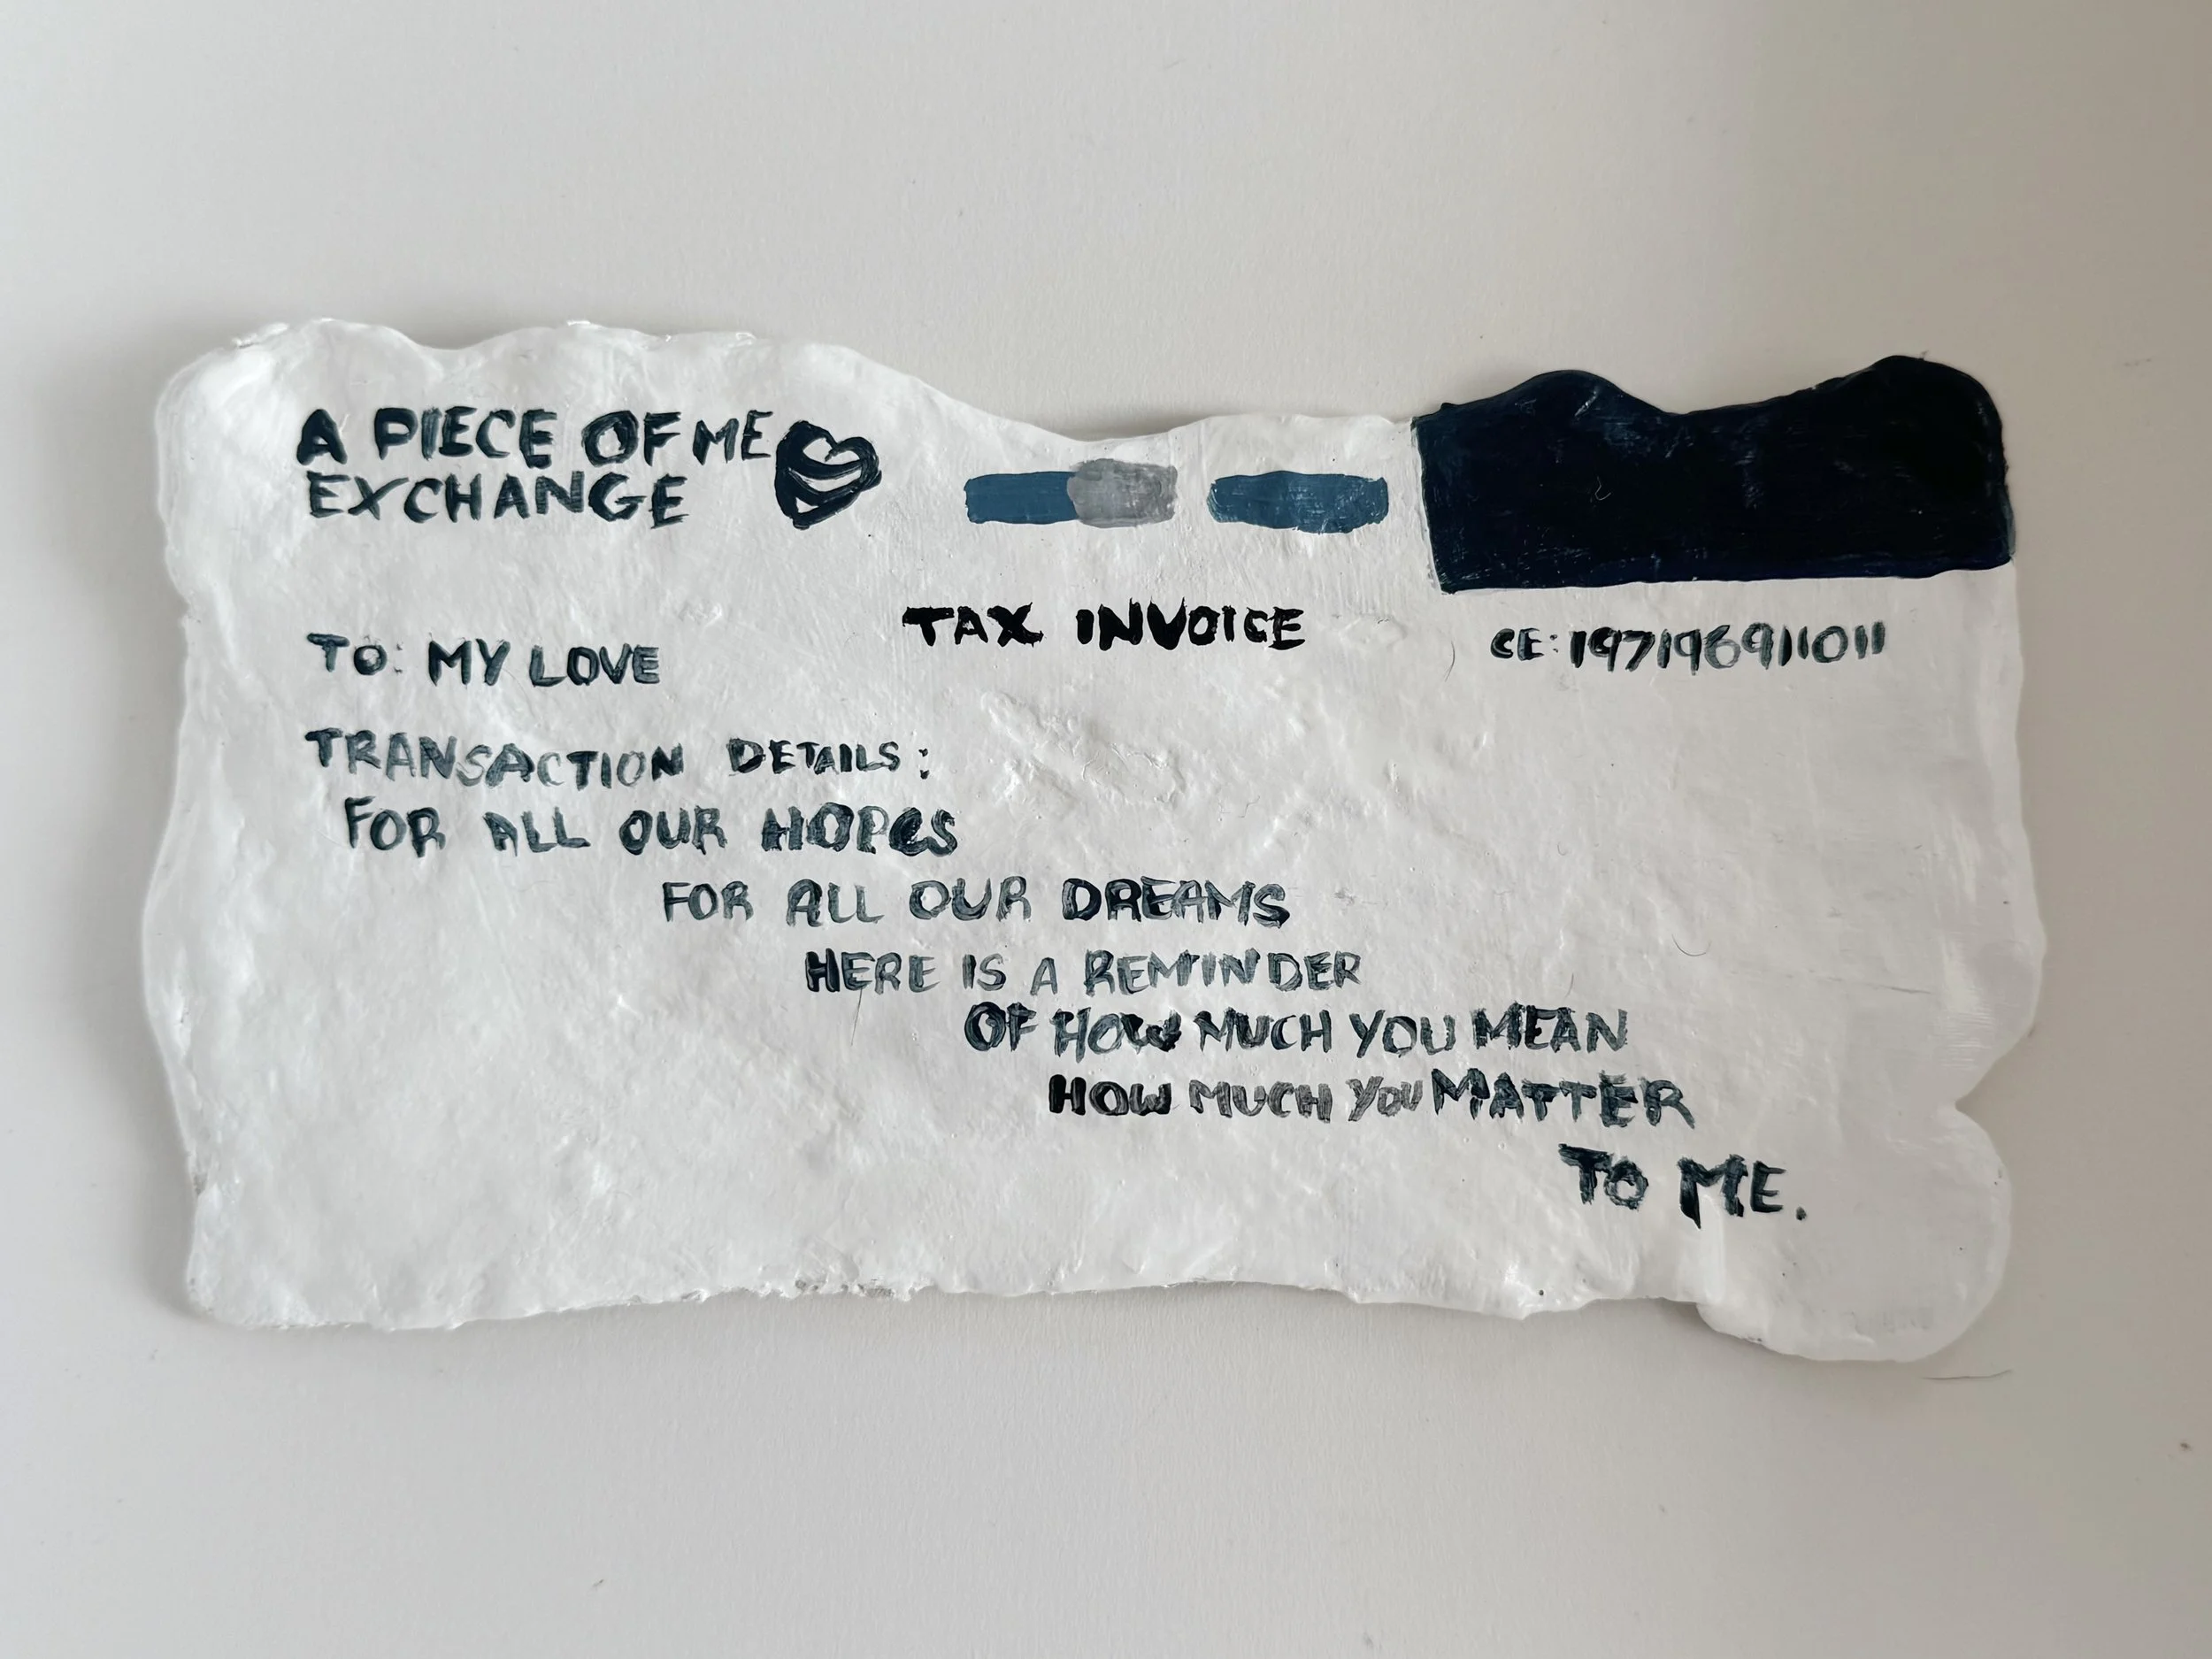 A PIECE OF ME
EXCHANGE
TAX INVOICE
CE: 197196911011
TO: MY LOVE
TRANSACTION DETAILS:
FOR ALL OUR HOPES
FOR ALL OUR DREAMS
HERE IS A REMINDER
OF HOW MUCH YOU MEAN
HOW MUCH YOU MATTER
TO ME.